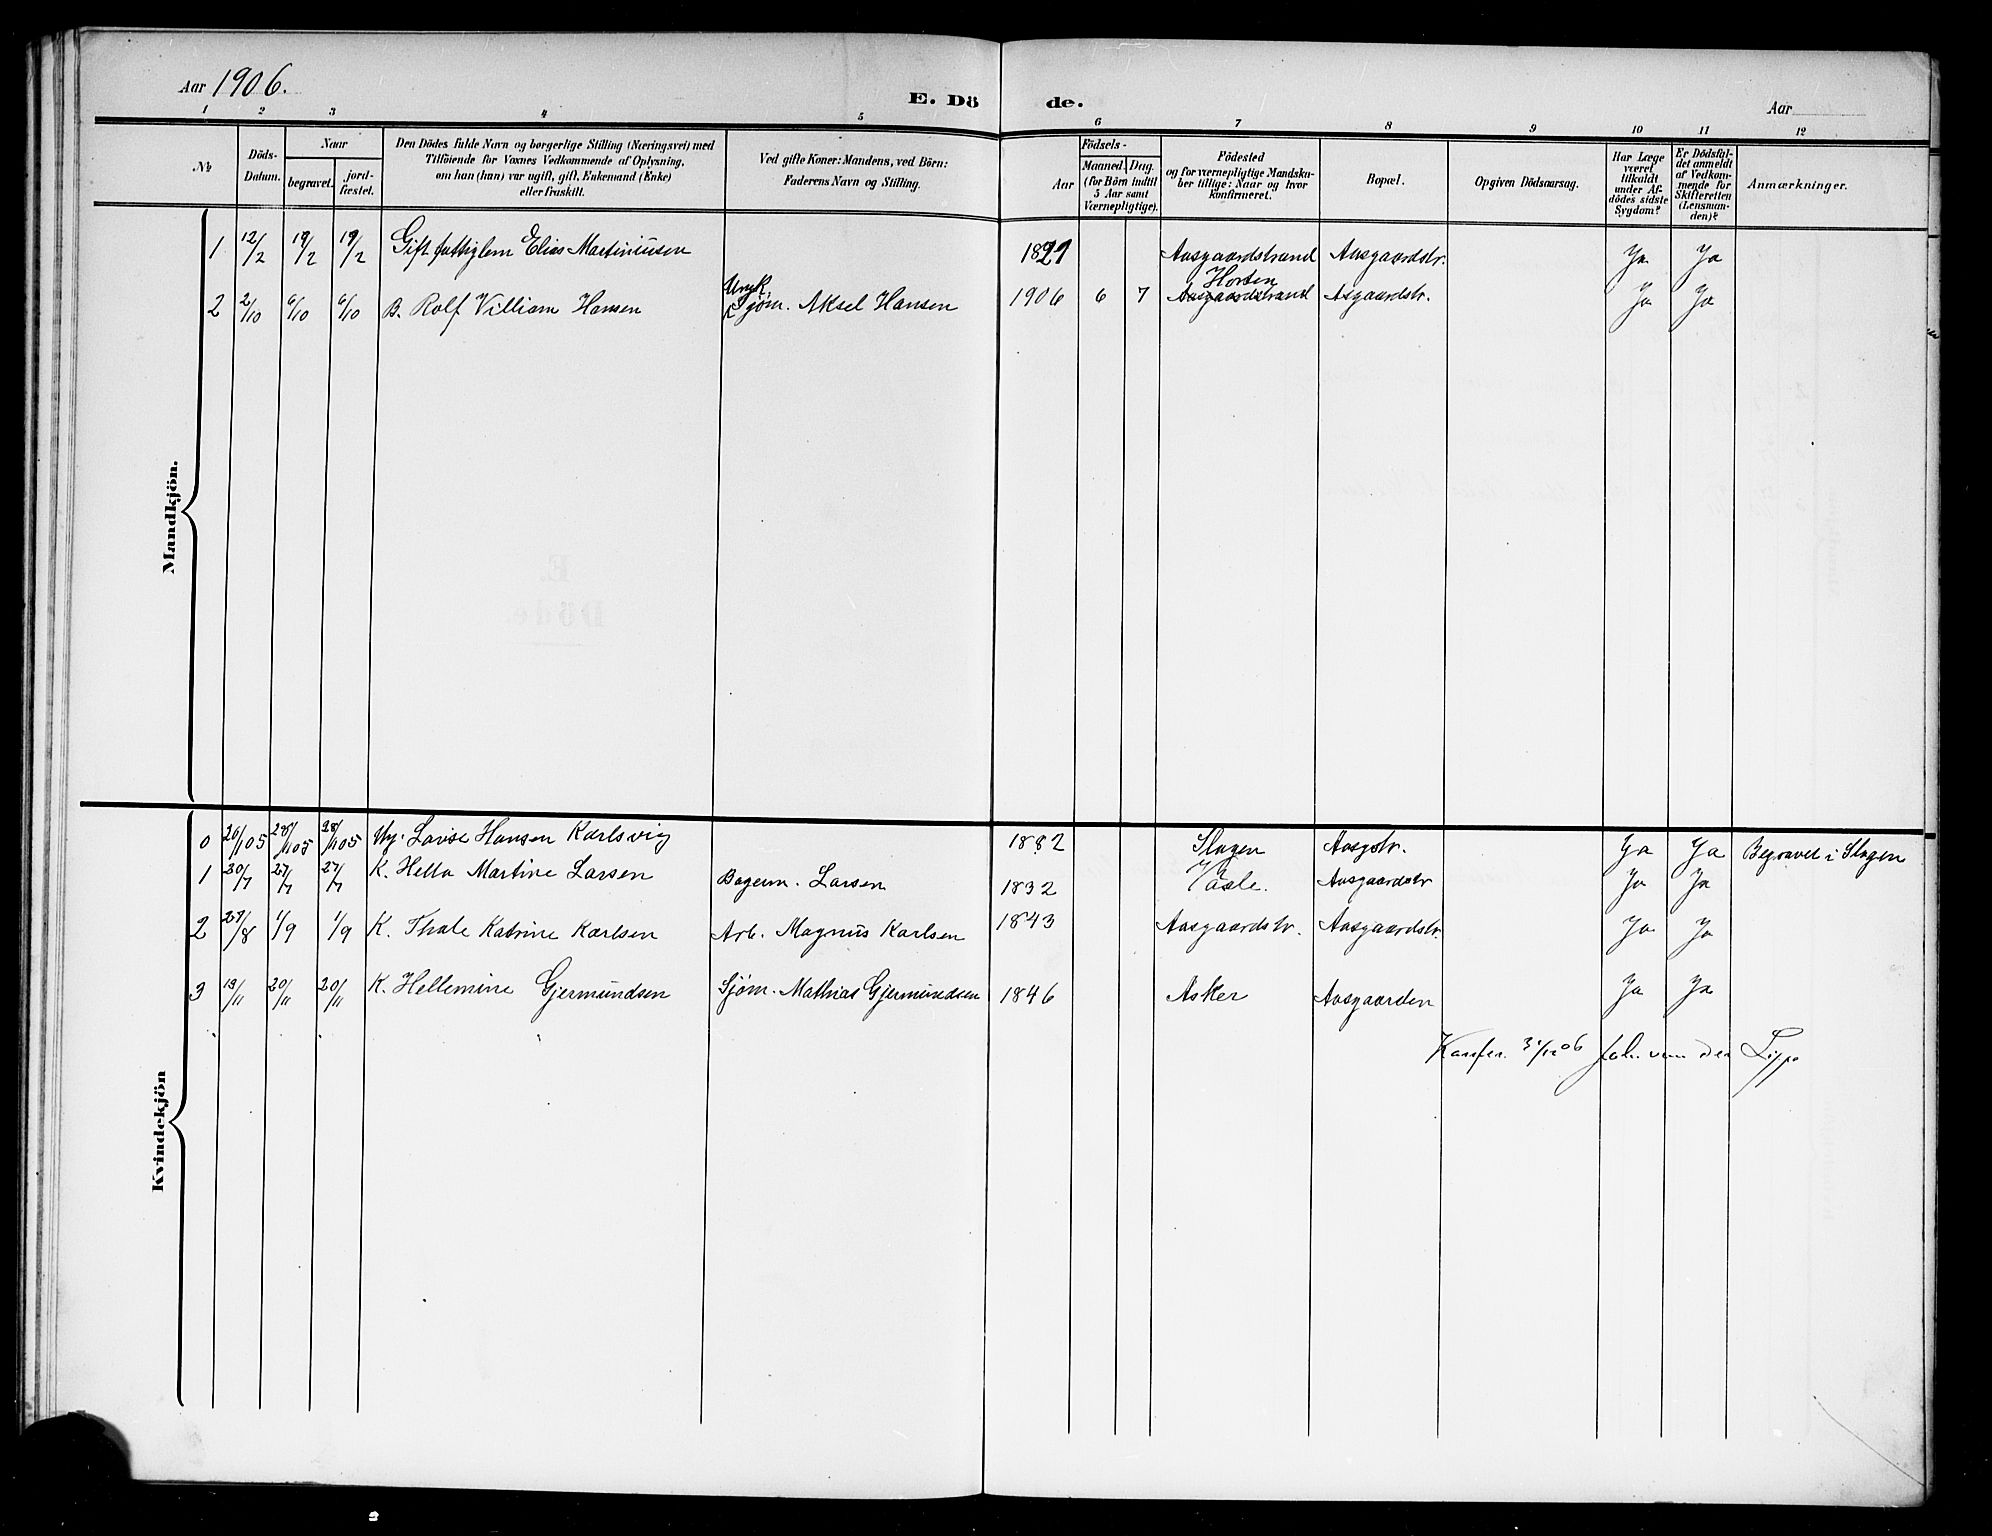 Aar 1906.
E. Dö de.
Aar
1 2 3 4 5 6 7 8 9 10 11 12
No
Döds-Datum.
Naar
begravet.
jordfæstet.
Den Dödes fulde Navn og borgerlige Stilling (Næringsvei) med
Tilföiende for Voxnes Vedkommende af Oplysning,
om han (hun) var ugift, gift, Enkemand (Enke)
eller fraskilt.
Ved gifte Koner: Mandens, ved Börn:
Faderens Navn og Stilling.
Födsels-
Aar
Maaned. Dag.
(for Börn indtil
5 Aar samt
Værnepligtige).
Födested
og for værnepligtige Mandsku-
ber tillige: Naar og hvor
konfirmeret.
Bopæl.
Opgiven Dödsaarsag.
Har Læge
været
tilkaldt
under Af-
dödes sidste
Sygdom?
Er Dödsfal-
det anmeldt
af Vedkom-
mende for
Skifteretten
(Lensman-
den)?
Anmærkninger.
Mandkjön.
1 12/2 19/2 19/2 Gift fattiglem Elias Martiniusen 1821 Aasgaardstrand Aasgaardstr. Ja Ja
2 2/10 6/10 6/10 B. Rolf Villiam Hansen Sjøm. Aksel Hansen 1906 6 7 Horten Aasgaardstrand Asgaardstr. Ja Ja
Kvindekjön
0 26/1105 28/1105 28/1105 Ug. Lovise Hansen Karlsvig 1882 Slagen Aasgstr. Ja Ja Begravet i Slagen
1 20/7 27/7 27/7 K. Hella Martine Larsen Bagerm. Larsen 1832 Våle. Aasgaardstr Ja Ja
2 27/8 1/9 1/9 K. Thale Katrine Karlsen Arb. Magnus Karlsen 1843 Aasgaardstr. Aasgaardstr. Ja Ja
3 13/11 20/11 20/11 K. Hellemine Gjermundsen Sjøm. Mathias Gjermundsen 1846 Asker Aasgaarden Ja Ja
Konfer. 31/12 06 Joh. van der Lippe